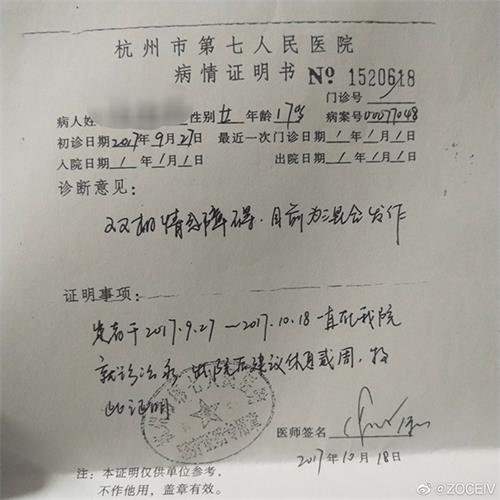 杭州市第七人民医院
病情证明书 № 1520618
门诊号 /
病人姓 性别 女 年龄 17岁 病案号 00077048
初诊日期 2017年9月27日 最近一次门诊日期 / 年 / 月 / 日
入院日期 / 年 / 月 / 日 出院日期 / 年 / 月 / 日
诊断意见：
双相情感障碍，目前为混合发作
证明事项：
患者于2017.9.27—2017.10.18一直在我院
就诊治疗，出院后建议休息贰周，特
此证明
医师签名
2017年10月18日
注：本证明仅供单位参考，
不作他用，盖章有效。
@ZOCEIV